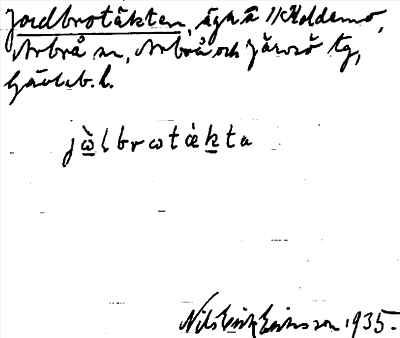 Jordbrotäkten, äga å 11 Koldemo,
Arbrå sn, Arbrå och Järvsö tg,
Gävleb. l.
jὼlbrωtάkta
Nils Erik Eriksson 1935.